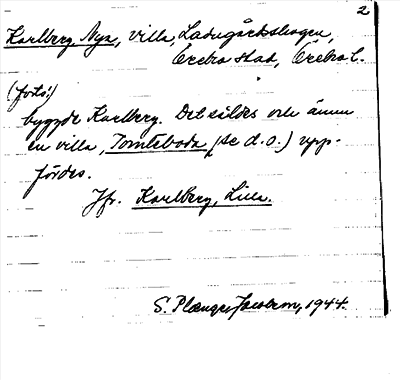 2
Karlberg, Nya, villa, Ladugårdsskogen,
Örebro stad, Örebro l.
(forts.)
byggde Karlberg. Det såldes och ännu
en villa, Tomteboda (se d.o.) upp-
fördes.
Jfr. Karlberg, Lilla.
S. Planger Jacobson, 1944.